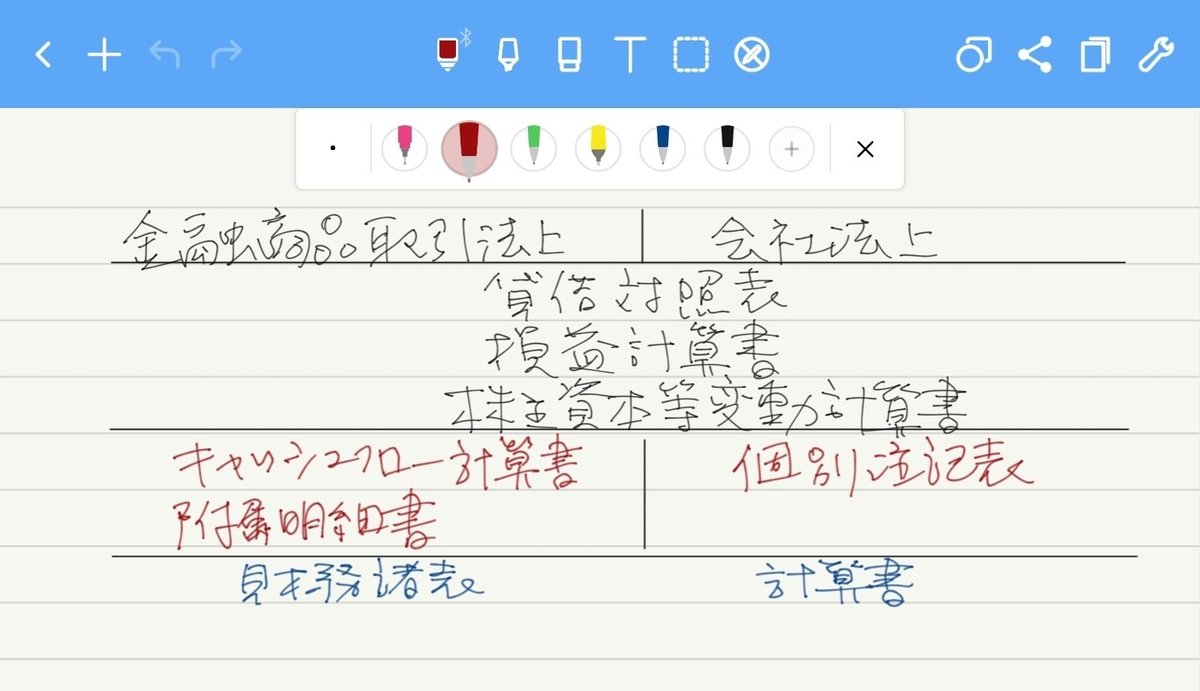 金融商品取引法上 会社法上
貸借対照表
損益計算書
株主資本等変動計算書
キャッシュフロー計算書 個別注記表
附属明細書
財務諸表 計算書